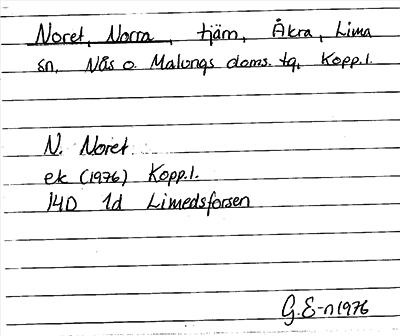 Noret, Norra, tjärn, Åkra, Lima
sn, Nås o. Malungs doms. tg, Kopp.l.
N. Noret
ek (1976) Kopp.l.
14D 1d Limedsforsen
G.E-n 1976